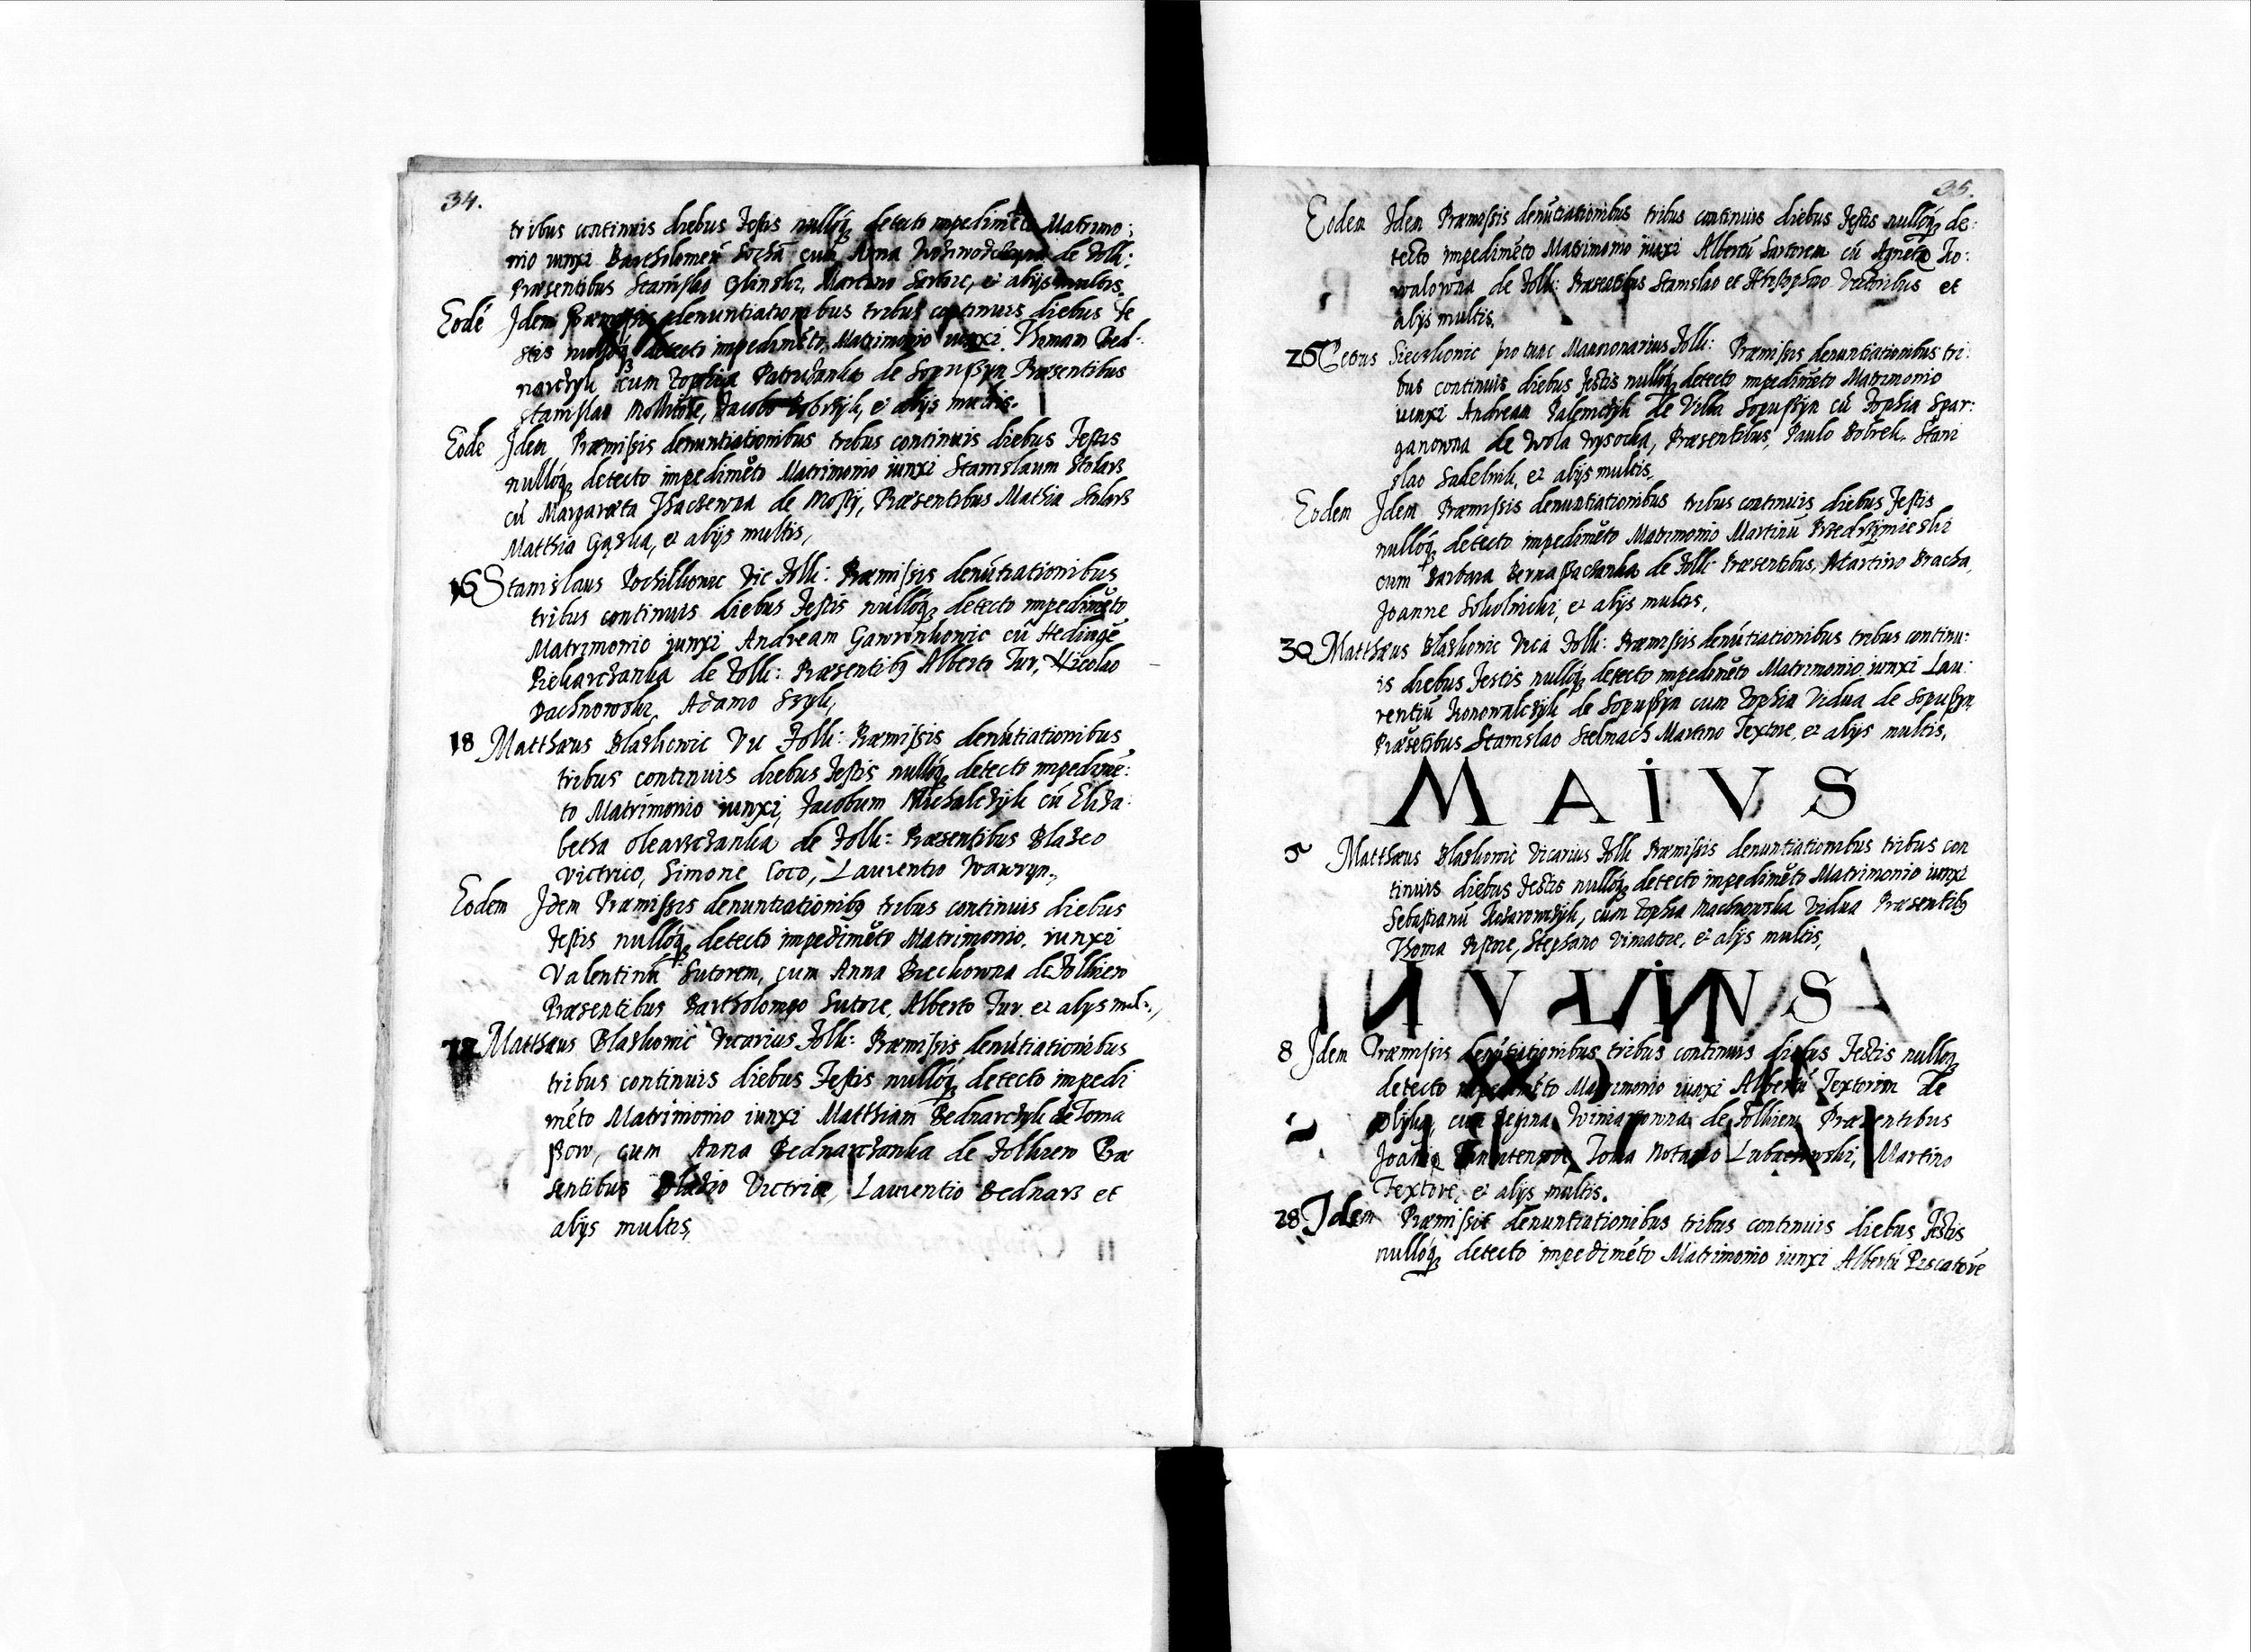 34.
tribus continuis diebus Festis nullóq detecto impedimēto Matrimo:
nio iunxi Bartholomeū Sochā cum Anna de Zolk:
Præsentibus Stanislao Glinski, Martino Sartore, et alijs multis.
Eodē Idem Præmissis denuntiationibus tribus continuis diebus Fe
stis nullóq detecto impedimēto, Matrimonio iunxi Thomam Bed:
narchyk cum Zophia Patrichanka de Sopussyn Præsentibus
Stanislao Molitore, Jacobo Bobrzyk, et alijs multis.
Eodē Idem Præmissis denuntiationibus tribus continuis diebus Festis
nullóq detecto impedimēto Matrimonio iunxi Stanislaum Stolarz
cū Margareta Isaciewna de Mosty, Præsentibus Mathia Stolarz
Matthia Gąska, et alijs multis,
16 Stanislaus Pochilkowic Vic Zolk: Præmissis denūtiationibus
tribus continuis diebus Festis nullóq detecto impedimēto
Matrimonio iunxi Andream Gawronkowic cū Hedingē
Piekarczanka de Zolk: Præsentibq Alberto Tur, Nicolao
Dachnowski, Adamo Szyk,
18 Matthæus Blazkowic Vic Zolk: Præmissis denūtiationibus
tribus continuis diebus Festis nullóq detecto impedimē:
to Matrimonio iunxi, Jacobum Michalczyk cū Eliza:
betha Olearczanka de Zolk: Præsentibus Blazeo
Victrico, Simone Coco, Laurentio Wawryn,
Eodem Idem Præmissis denuntiationibq tribus continuis diebus
Festis nullóq detecto impedimēto Matrimonio, iunxi
Valentinū Sutorem, cum Anna Bieckowna de Zolkiew
Præsentibus Bartholomeo Sutore, Alberto Tur, et alijs mul:,
Matthæus Blazkowic Vicarius Zolk: Præmissis denūtiationibus
tribus continuis diebus Festis nullóq detecto impedi
mēto Matrimonio iunxi Matthiam Bednarczyk de Toma
szow, cum Anna Bednarczanka de Zolkiew Præ
sentibus Blasio Victrico, Laurentio Bednarz et
alijs multis,
35.
Eodem Idem Præmissis denūciationibus tribus continuis diebus Festis nullóq de:
tecto impedimēto Matrimonio iunxi Albertū Sartorem cū Agneta Ko:
walowna de Zolk: Præsentibus Stanislao et Khristophoro Vectoribus et
alijs multis.
26 Sieczkowic pro tunc Mansionarius Zolk: Præmissis denuntiationibus tri:
bus continuis diebus Festis nullóq detecto impedimēto Matrimonio
iunxi Andream Palemczyk de Villa Sopussyn cū Zophia Spar:
ganowna de Wola Wysocka, Præsentibus, Paulo Bobrek, Stani
slao Sadelnik, et alijs multis,
Eodem Idem Præmissis denuntiationibus tribus continuis diebus Festis
nullóq detecto impedimēto Matrimonio Martinū Przedrzymieski
cum Barbara Bernaszaczanka de Zolk: Præsentibus, Martino Bracha,
Joanne Sokolnicki, et alijs multis,
30 Matthæus Blazkowic Vica Zolk: Præmissis denūtiationibus tribus continu:
is diebus Festis nullóq detecto impedimēto Matrimonio iunxi Lau:
rentiū Konowalczyk de Sopussyn cum Zophia Vidua de Sopussyn,
Præsētibus Stanislao Stelmach Martino Textore, et alijs multis,
MAIVS
5 Matthæus Blazkowic Vicarius Zolk Præmissis denuntiationibus tribus con
tinuis diebus Festis nullóq detecto impedimēto Matrimonio iunxi
Sebastianū cum Zophia Machnowska Vidua Præsentibq
Thoma Pistore, Stephano Vimatore, et alijs multis,
IVLIVS
8 Idem Præmissis denūtiationibus tribus continuis diebus Festis nullóq
detecto impedimēto Matrimonio iunxi Albertū Textorem de
cum Regina Winiarzowna de Zolkiew Præsentibus
Joanne Toma Notario Lubaczewski, Martino
Textore, et alijs multis.
28 Idem Præmissis denuntiationibus tribus continuis diebus Festis
nullóq detecto impedimēto Matrimonio iunxi Albertū Piscatorē